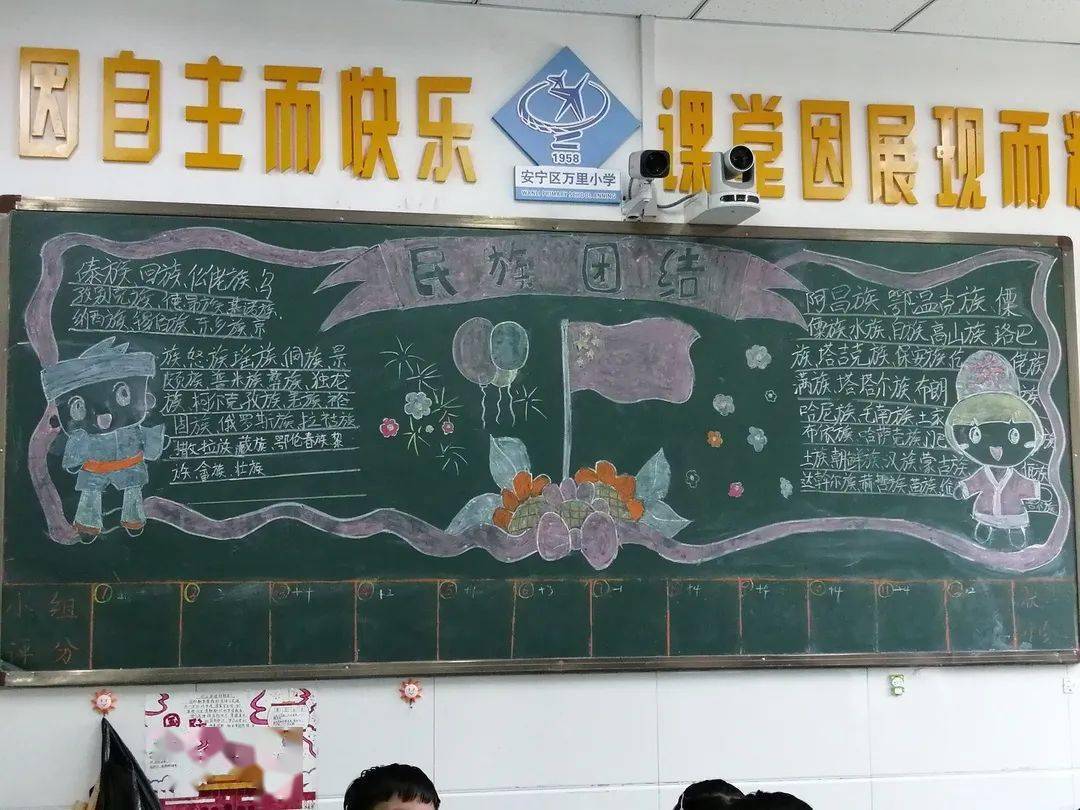 因自主而快乐
1958
安宁区万里小学
WANLI PRIMARY SCHOOL ANNING
课堂因展现而精
民族团结
傣族、回族、仫佬族、乌
孜别克族、傈僳族、基诺族、
纳西族、锡伯族、东乡族、京
族、怒族、瑶族、侗族、景
颇族、普米族、彝族、独龙
族、柯尔克孜族、羌族、裕
固族、俄罗斯族、拉祜族
撒拉族、藏族、鄂伦春族、黎
族、畲族、壮族
阿昌族、鄂温克族、傈
僳族、水族、白族、高山族、珞巴
族、塔吉克族、保安族、仡佬族
满族、塔塔尔族、布朗
哈尼族、毛南族、土家
布依族、哈萨克族、门巴
土族、朝鲜族、汉族、蒙古族
达斡尔族、赫哲族、苗族、维
小组
评分
① ② +4 +2 ⑤ +1 ⑥ +3 ① -1 +4 +4 +4 ⑪ +4
国